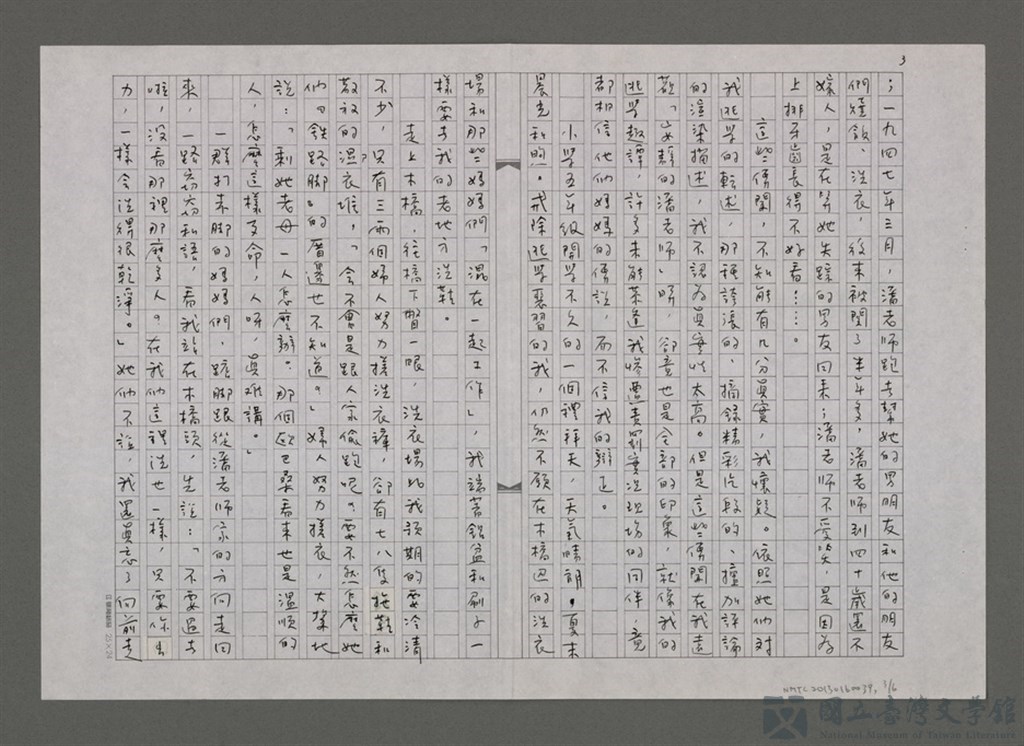 3
；一九四七年三月，潘老師跑去幫她的男朋友和他的朋友
們燒飯、洗衣，後來被關了半年多，潘老師到四十歲還不
嫁人，是在等她失踪的男友回來；潘老師不愛笑，是因為
上排牙齒長得不好看……。
這些傳聞，不知能有幾分真實，我懷疑。依照她們對
我逃學的轉述，那種誇張的、摘錄精彩片段的、擅加評論
的渲染描述，我不認為真實性太高。但是這些傳聞在我喜
歡「安靜的潘老師」時，卻竟也是全部的印象，就像我的
逃學趣譚，許多未能萊逢我慘遭責罰實況現場的同伴，竟
都相信他們媽媽的傳說，而不信我的辯正。
小學五年級開學不久的一個禮拜天，天氣晴朗，夏末
晨光和煦。戒除逃學惡習的我，仍然不願在木橋邊的洗衣
場和那些媽媽們「混在一起工作」，我端著鋁盆和刷子一
樣要去我的老地方洗鞋。
走上木橋，往橋下瞥一眼，洗衣場比我預期的要冷清
不少，只有三兩個婦人努力搓洗衣褲，卻有七八隻拖鞋和
散放的濕衣堆，「會不會是跟人家偷跑呢。要不然怎麼她
們『鐵路腳』的厝邊也不知道。」婦人努力搓衣，大聲地
說：「剩她老母一人怎麼辦。那個歐巴桑看來也是溫順的
人，怎麼這樣歹命，人呀，真難講。」
一群打赤腳的媽媽們，踮腳跟從潘老師家的方向走回
來，一路竊竊私語，看我站在木橋頭，先說：「不要過去
啦，沒看那裡那麼多人。在我們這裡洗也一樣，只要你出
力，一樣會洗得很乾淨。」她們不說，我還真忘了向前走
NMTL20130160034, 3/6
國立臺灣文學館
National Museum of Taiwan Literature